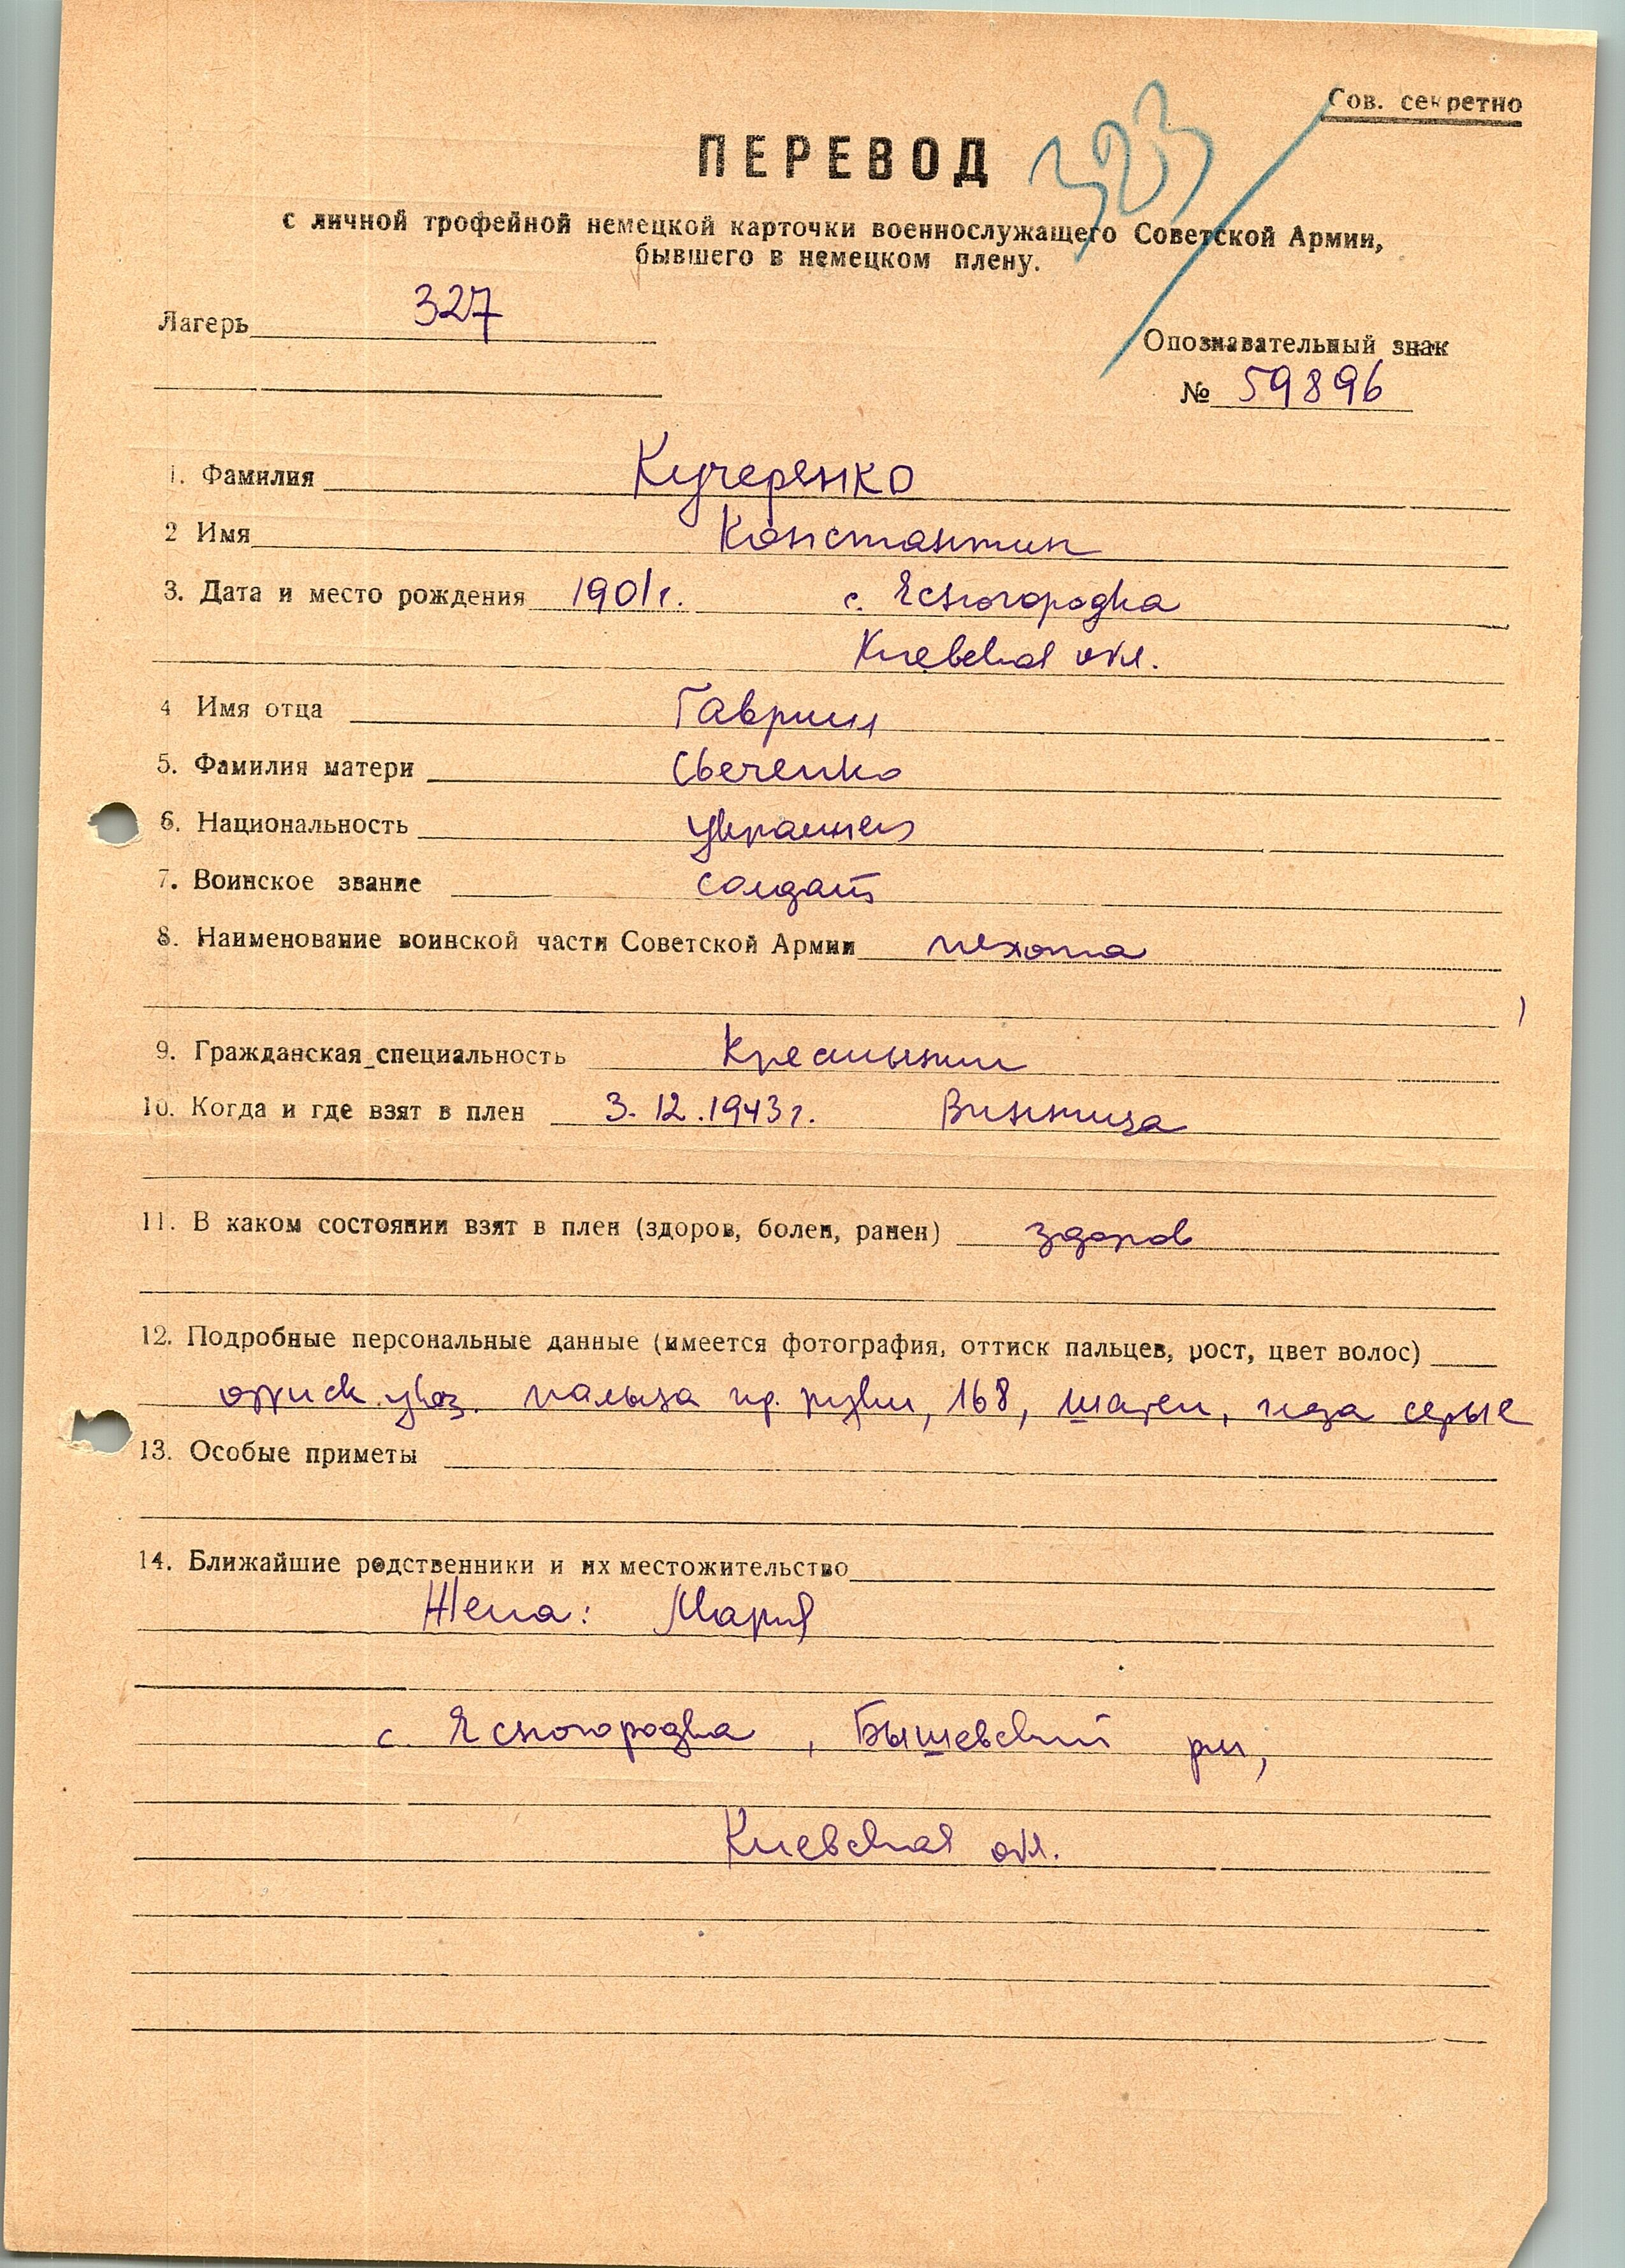 Сов. секретно
ПЕРЕВОД
323
с личной трофейной немецкой карточки военнослужащего Советской Армии,
бывшего в немецком плену.
Лагерь 327
Опознавательный знак
№ 59896
1. Фамилия Кучеренко
2 Имя Константин
3. Дата и место рождения 1901г. с. Ясногородка
Киевская обл.
4 Имя отца Гаврил
5. Фамилия матери Свеченко
6. Национальность украинец
7. Воинское звание солдат
8. Наименование воинской части Советской Армии пехота
9. Гражданская специальность Крестьянин
10. Когда и где взят в плен 3.12.1943г. Винница
11. В каком состоянии взят в плен (здоров, болен, ранен) здоров
12. Подробные персональные данные (имеется фотография, оттиск пальцев, рост, цвет волос)
оттиск указ. пальца пр. руки, 168, шатен, глаза серые
13. Особые приметы
14. Ближайшие родственники и их местожительство
Жена: Мария
с. Ясногородка, Бышевский рн,
Киевская обл.